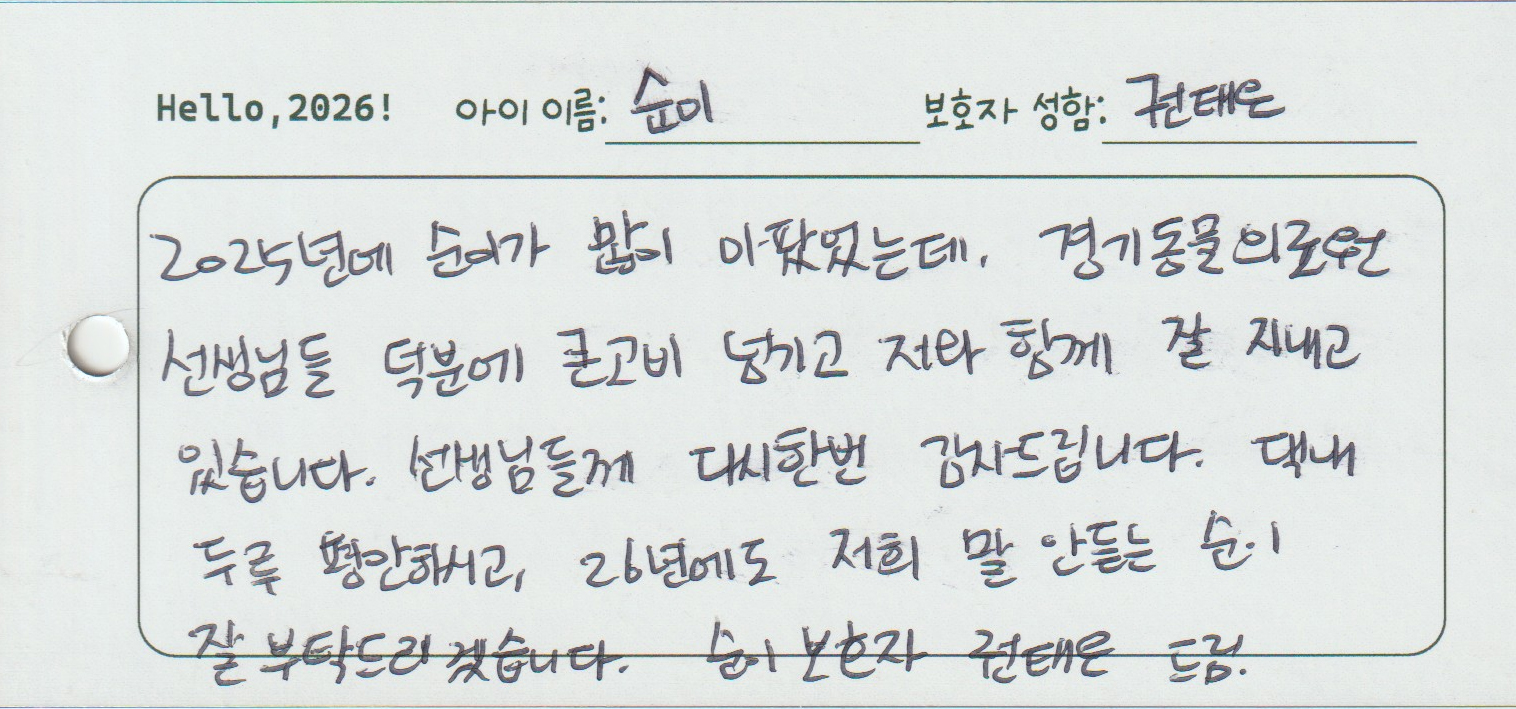 Hello,2026! 아이 이름: 순이 보호자 성함: 권태은
2025년에 순이가 많이 아팠었는데, 경기동물의료원
선생님들 덕분에 큰고비 넘기고 저와 함께 잘 지내고
있습니다. 선생님들께 다시한번 감사드립니다. 댁내
두루 평안하시고, 26년에도 저희 말 안듣는 순이
잘 부탁드리겠습니다. 순이 보호자 권태은 드림.